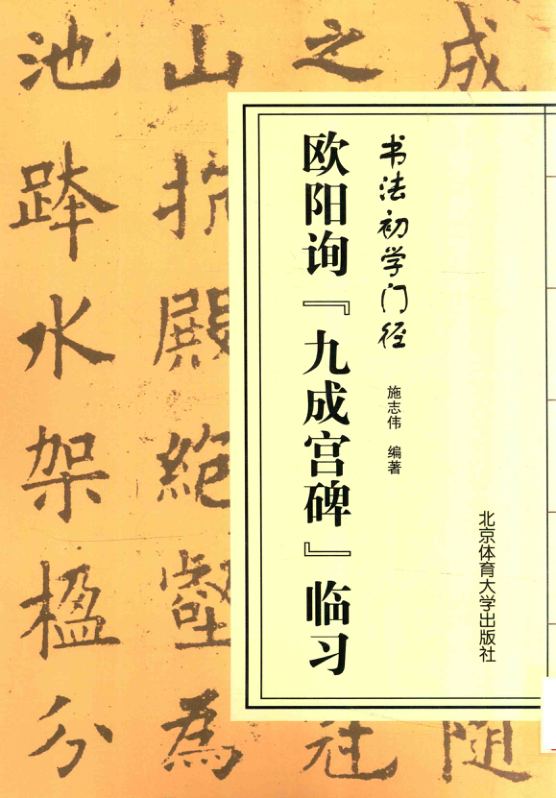 书法初学门径
欧阳询『九成宫碑』临习
施志伟 编著
北京体育大学出版社
成
随
之
冠
山
抗
殿
絶
壑
為
池
跨
水
架
楹
分